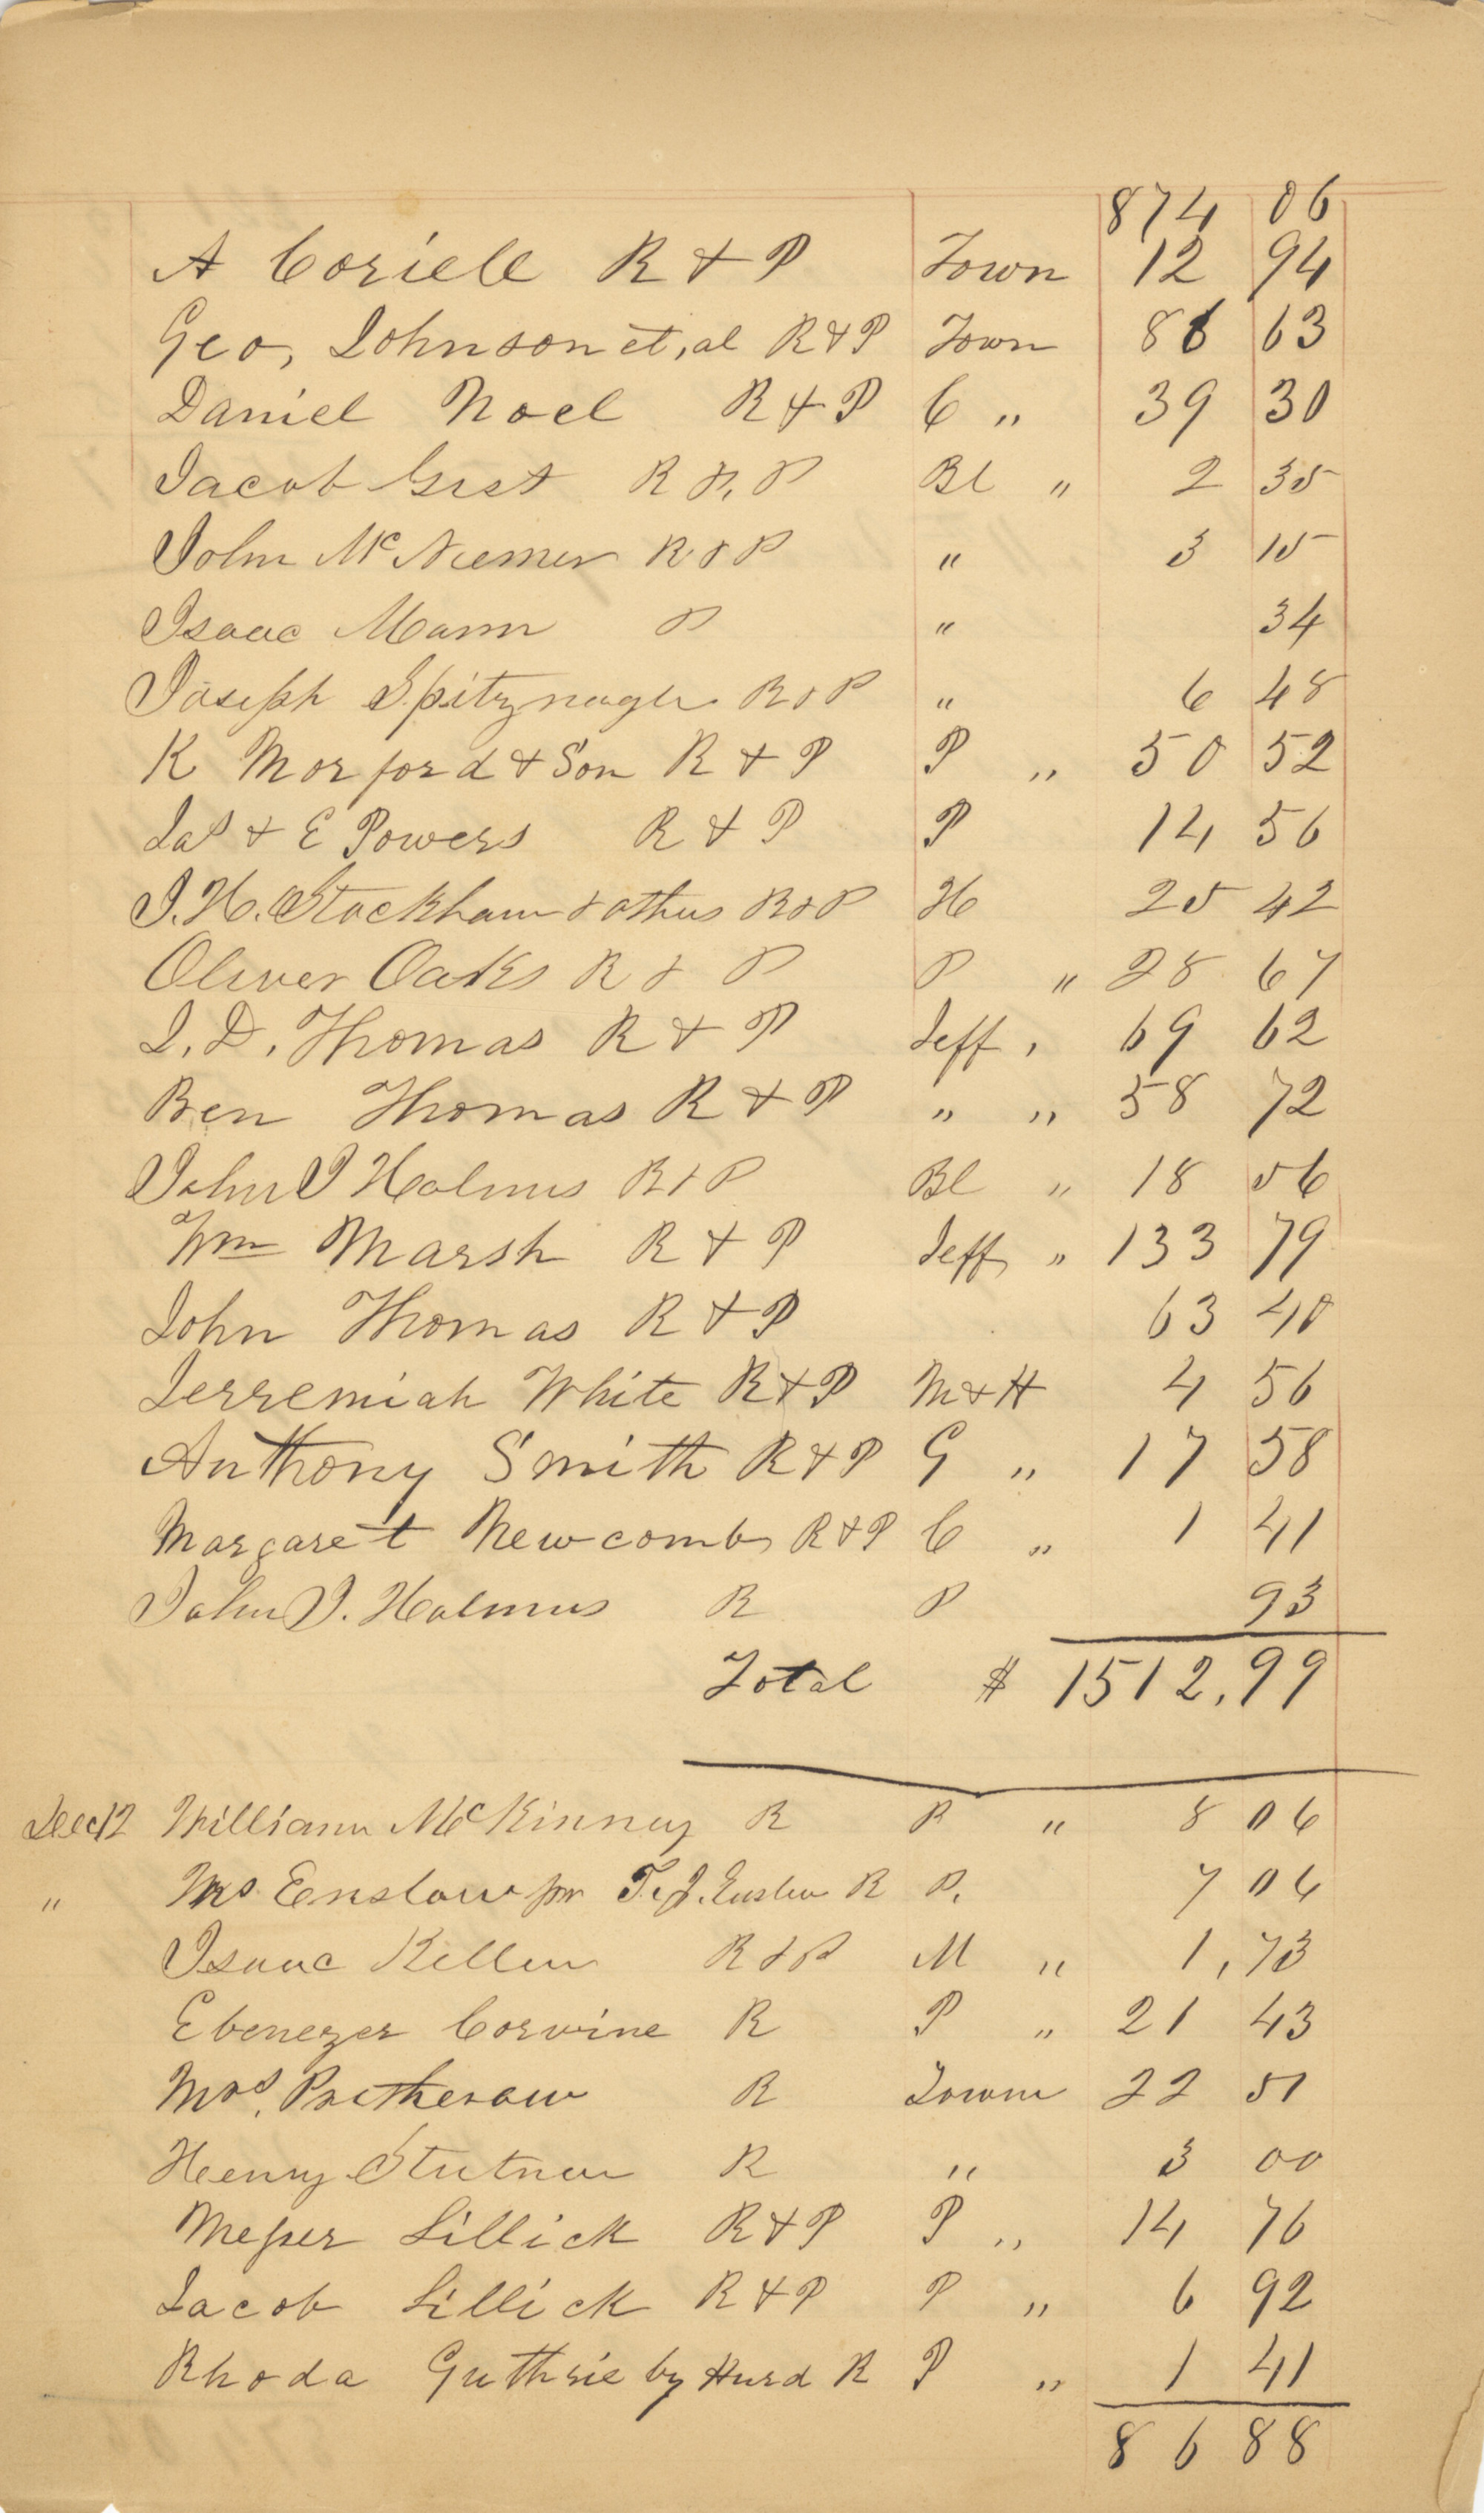 874 06
A Coriell R & P Town 12 94
Geo, Johnson et, al R & P Town 86 63
Daniel Noel R & P C " 39 30
Jacob Gist R &, P Bl " 2 35
John McNiemer R & P " 3 15
Isaac Mann P " 34
Joseph Spitznagle R & P " 6 48
K Morford & Son R & P P " 50 52
Jas & E Powers R & P P 14 56
J. H. Stockham & others R & P H 25 42
Oliver Oakes R & P P " 28 67
J. D. Thomas R & P Jeff, 69 62
Ben Thomas R & P " " 58 72
John J Holmes R & P Bl " 18 56
Wm Marsh R & P Jeff, " 133 79
John Thomas R & P 63 40
Jerremiah White R & P M & H 4 56
Anthony Smith R & P G " 17 58
Margaret Newcomb R & P C " 1 41
John J. Holmes R P 93
Total $ 1512,99
Dec 12 William McKinney R R " 8 06
" Mrs. Enslow pr T. J. Enslow R P. 7 06
Isaac Keller R & P M " 1,73
Ebenezer Corwine R P " 21 43
Mrs. Pretherow R Town 22 51
Henry R " 3 00
Messer Lillick R & P P " 14 76
Jacob Lillick R & P P " 6 92
Rhoda Guthrie by Hurd R P " 1 41
86 88